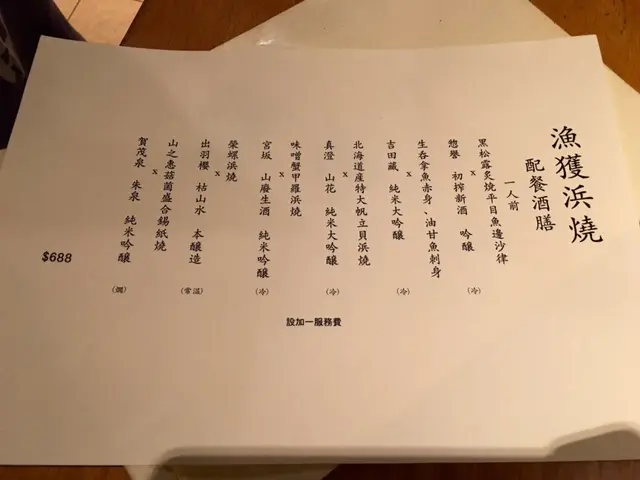 漁獲浜燒
配餐酒膳
一人前
黑松露炙燒平目魚邊沙律
x
惣譽 初搾新酒 吟釀 (冷)
生吞拿魚赤身、油甘魚刺身
x
吉田藏 純米大吟釀 (冷)
北海道産特大帆立貝浜燒
x
真澄 山花 純米大吟釀 (冷)
味噌蟹甲羅浜燒
x
宮坂 山廢生酒 純米吟釀 (冷)
榮螺浜燒
x
出羽櫻 枯山水 本釀造 (常溫)
山之惠菇菌盛合錫紙燒
x
賀茂泉 朱泉 純米吟釀 (燗)
$688
設加一服務費